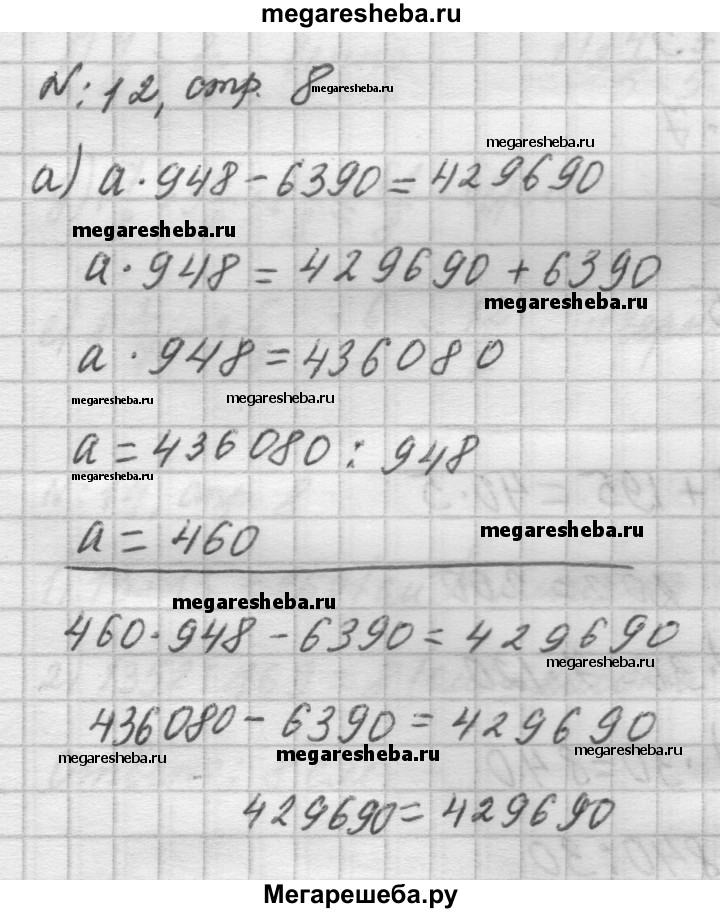 megaresheba.ru
N: 12, стр. 8 megaresheba.ru
megaresheba.ru
а) а · 948 - 6390 = 429690
megaresheba.ru
а · 948 = 429690 + 6390
megaresheba.ru
а · 948 = 436080
megaresheba.ru megaresheba.ru
а = 436080 : 948
megaresheba.ru
а = 460 megaresheba.ru
megaresheba.ru
460 · 948 - 6390 = 429690
megaresheba.ru
436080 - 6390 = 429690
megaresheba.ru megaresheba.ru megaresheba.ru
429690 = 429690
Мегарешеба.ру